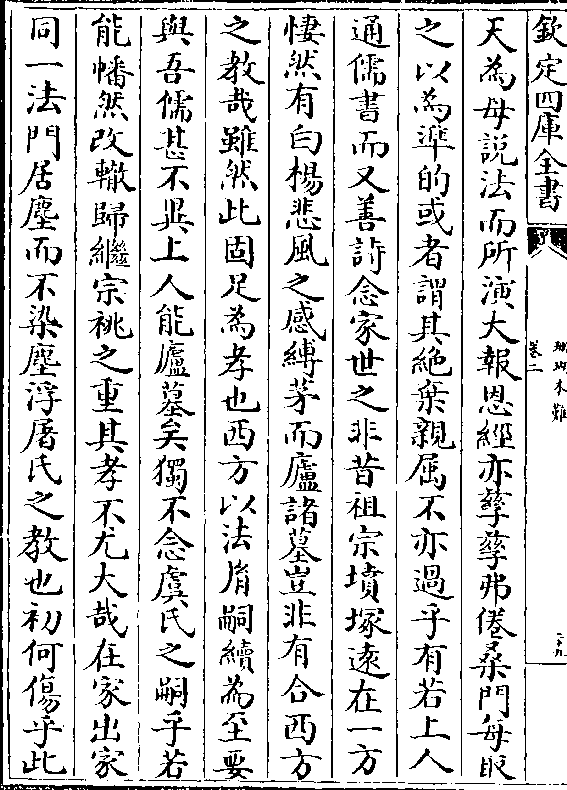 欽定四庫全書
珊瑚木難
卷二
天為母說法而所演大報恩經亦孳孳弗倦桑門每取
之以為準的或者謂其絶棄親属不亦過乎有若上人
通儒書而又善詩念家世之非昔祖宗墳塚遠在一方
悽然有白楊悲風之感縛茅而廬諸墓豈非有合西方
之教哉雖然此固足為孝也西方以法胤嗣續為至要
與吾儒甚不異上人能廬墓矣獨不念虞氏之嗣乎若
能幡然改轍歸繼宗祧之重其孝不尤大哉在家出家
同一法門居塵而不染塵浮屠氏之教也初何傷乎此